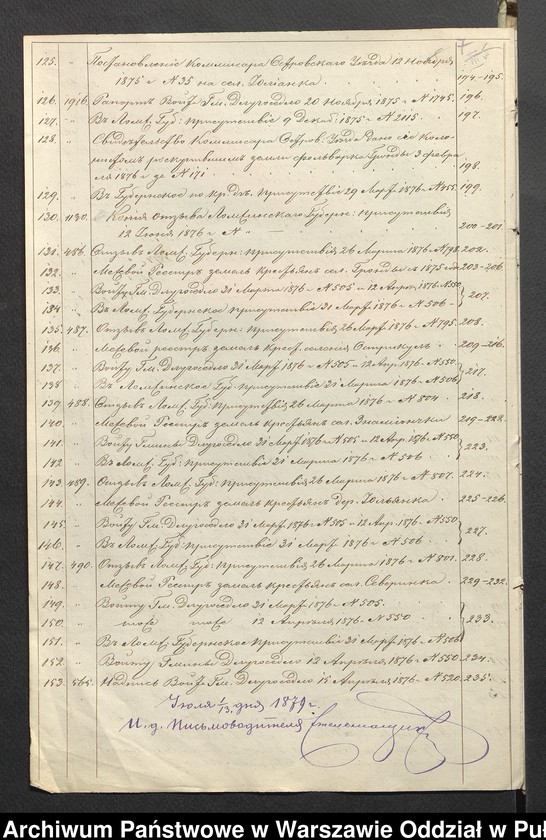 125. " Постановленіе Коммисара Островскаго Уѣзда 12 Ноября
1875 г N 35 на сел. Юліанка 194-195.
126. 1916. Рапортъ Войта Гм. Длугосѣдло 20 Ноября 1875 г N 1745. 196.
127. " Въ Ломж. Губ. Присутствіе 9 Декаб. 1875 г N 2115. 197.
128. " Свидѣтельство Коммисара Остров. Уѣзда дано сіе
земли фольварка 3 Февра
ля 1876 г за N 171 198.
129. " Въ Губернское по кр. дѣл. Присутствіе 29 Марта 1876 г N 455. 199.
130. 1130. Копія Отзыва Ломжинскаго Губерн: Присутствія
12 Іюня 1876 г N — 200-201.
131. 486. Отзывъ Ломж. Губерн: Присутствія 26 Марта 1876 г N 798. 202.
132. " Межевой Реестръ земель крестьянъ сел. 1875 203-206.
133. " Войту Гм. Длугосѣдло 31 Марта 1876 г N 505 и 12 Апр. 1876 г N 550
134. " Въ Ломж. Губернское Присутствіе 31 Март. 1876 г N 506 207.
135. 487. Отзывъ Ломж. Губерн. Присутствія 26 Март. 1876 г N 795. 208.
136. " Межевой реестръ земель крест. селенія 209-216.
137. " Войту Гм. Длугосѣдло 31 Март. 1876 г N 505 - 12 Апр. 1876 г N 550
138 " Въ Ломжинское Губ. Присутствіе 31 Марта 1876 г N 506 217.
139. 488. Отзывъ Ломж. Губ. Присутствія 26 Марта 1876 г N 804. 218.
140. " Межевой Реестръ земель крестьянъ сел. Знаменкы 219-222.
141. " Войту Гмины Длугосѣдло 31 Март. 1876 г N 505 - 12 Апр. 1876 г N 550
142 " Въ Ломж. Губ: Присутствіе 31 Марта 1876 г N 506. 223.
143. 489. Отзывъ Ломж. Губ: Присутствія 26 Марта 1876 г N 507. 224.
144. " Межевой Реестръ земель крестьянъ дер. Юльянка 225-226.
145. " Войту Гм. Длугосѣдло 31 Март. 1876 г N 505 - 12 Апр. 1876 г N 550
146. " Въ Ломж. Губ. Присутствіе 31 Март. 1876 г N 506 227.
147. 490. Отзывъ Ломж. Губ. Присутствія 26 Марта 1876 г N 801. 228.
148. " Межевой Реестръ земель крестьянъ сел. Северинка 229-232.
149. " Войту Гм. Длугосѣдло 31 Март. 1876 г N 505.
150. " тоже тоже 12 Апрѣля 1876 г N 550 233.
151. " Въ Ломж. Губернское Присутствіе 31 Март. 1876 г N 506
152. " Войту Гмины Длугосѣдло 12 Апрѣля 1876 г N 550 234.
153. 565. Надпись Войта Гм. Длугосѣдло 15 Апрѣля 1876 г N 520. 235.
Іюля 1/13 дня 1879 г.
И. д. Письмоводителя
Archiwum Państwowe w Warszawie Oddział w Puł